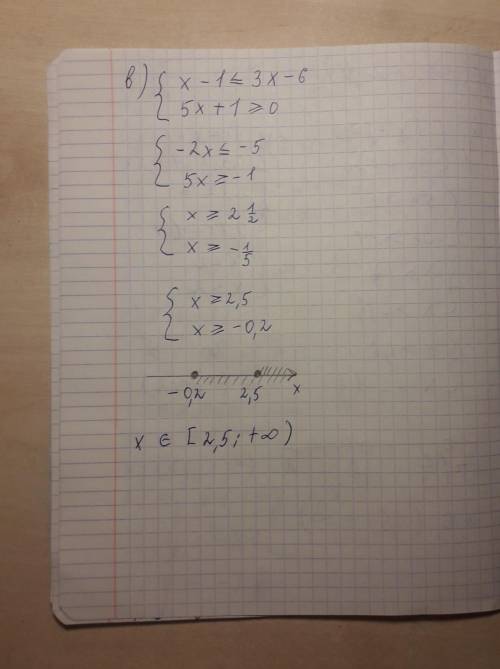 в) { x - 1 ≤ 3x - 6
5x + 1 ≥ 0
{ -2x ≤ -5
5x ≥ -1
{ x ≥ 2 1/2
x ≥ - 1/5
{ x ≥ 2,5
x ≥ -0,2
-0,2 2,5 x
x ∈ [2,5; +∞)